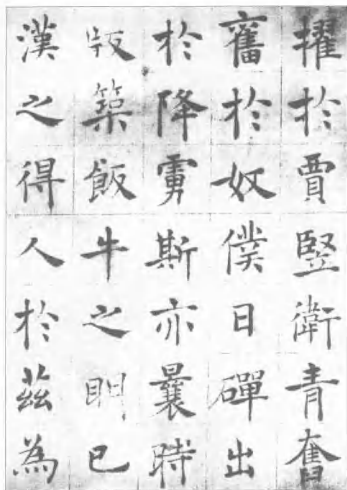 擢於賈竪衛青奮
舊於奴僕日磾出
於降虜斯亦曩時
版築飯牛之朋已
漢之得人於茲為